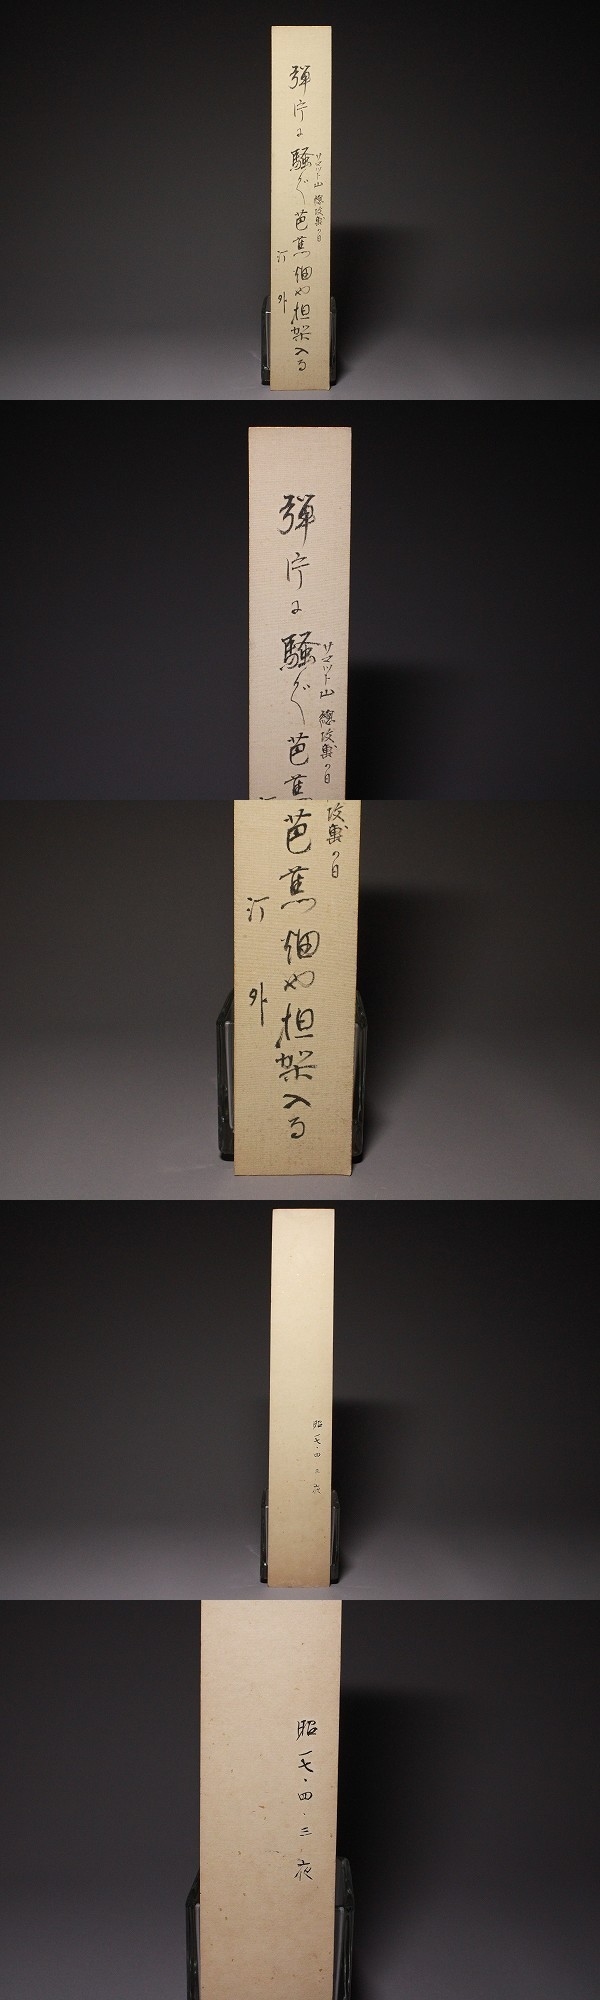 サマット山 總攻撃の日
弾庁に騒ぐ芭蕉畑や担架入る
汀外
サマット山 總攻撃の日
弾庁に騒ぐ芭蕉
攻撃の日
芭蕉畑や担架入る
汀外
昭一七・四・三 夜
昭一七・四・三 夜